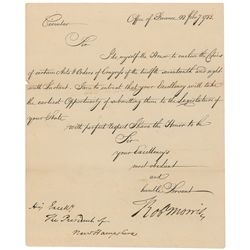 Circular
Office of Finance, 22d July 1783.
Sir
I do myself the Honor to enclose the Copies
of certain Acts & Orders of Congress of the twelfth nineteenth and eighth
instant. I am to entreat that your Excellency will take
the earliest Opportunity of submitting them to the Legislature of
your State.
With perfect Respect I have the Honor to be
Sir
your Excellency's
most obedient
and
humble Servant
Robt Morris
His Excelly
The President of
New Hampshire